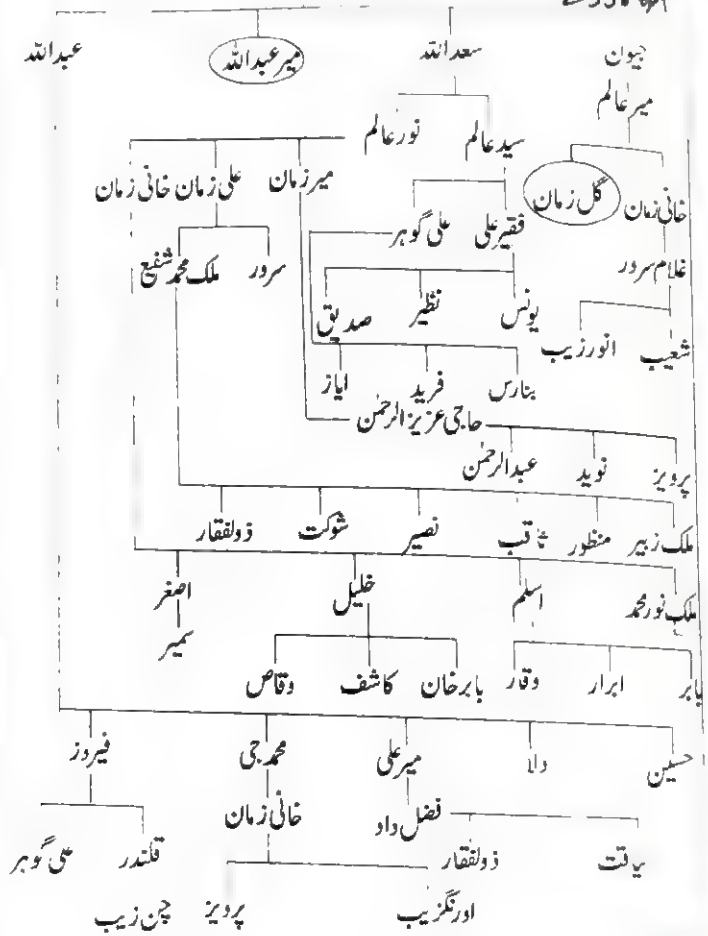 جیون سعد اللہ میر عبد اللہ عبد اللہ
میر عالم
سید عالم نور عالم
خانی زمان گل زمان میر زمان علی زمان خانی زمان
فقیر علی علی گوہر
غلام سرور سرور ملک محمد شفیع
یونس نظیر صدیق
شعیب انور زیب
بنارس فرید ایاز
حاجی عزیز الرحمٰن
پرویز نوید عبد الرحمٰن
ملک زبیر منظور ثاقب نصیر شوکت ذولفقار
ملک نور محمد اسلم خلیل اصغر
سمیر
بابر ابرار وقار بابر خان کاشف وقاص
حسین دلا میر علی محمد جی فیروز
فضل داد خانی زمان
یاقت ذولفقار قلندر علی گوہر
اورنگزیب پرویز چن زیب